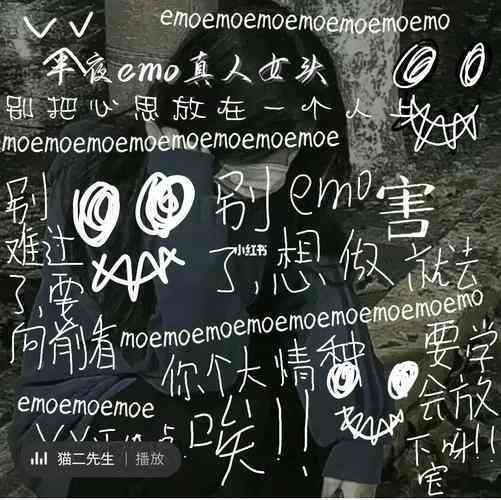 emoemoemoemoemoemoemoemo
半夜emo真人女头
别把心思放在一个人上
moemoemoemoemoemoemoemoe
别
难过
了,要
向前看
别emo害
了,想做就去
小红书
moemoemoemoemoemoemoemoemo
你个大情种
唉!!
要学
会放
下呀!!
宝
emoemoemoemoe
猫二先生 | 播放